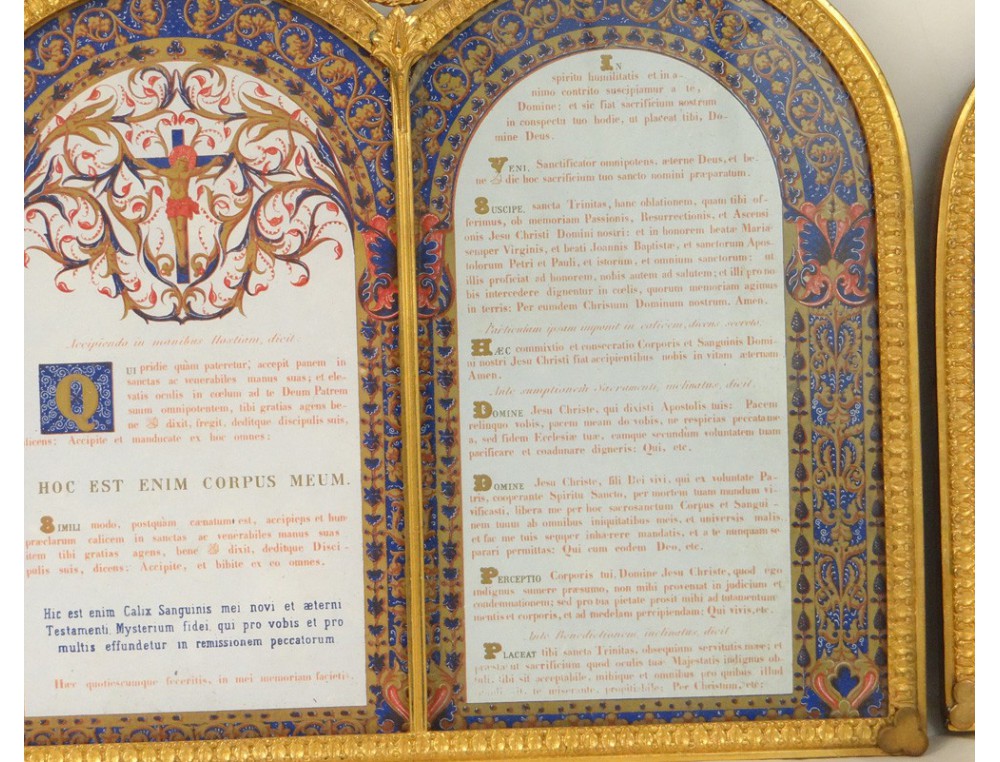 Accipiendo in manibus Hostiam, dicit
QUI pridie quàm pateretur, accepit panem in
sanctas ac venerabiles manus suas; et ele-
vatis oculis in cœlum ad te Deum Patrem
suum omnipotentem, tibi gratias agens be-
ne ✠ dixit, fregit, deditque discipulis suis,
dicens: Accipite et manducate ex hoc omnes:
HOC EST ENIM CORPUS MEUM.
SIMILI modo, postquàm cœnatum est, accipiens et hunc
præclarum calicem in sanctas ac venerabiles manus suas
item tibi gratias agens, bene ✠ dixit, deditque Disci-
pulis suis, dicens: Accipite, et bibite ex eo omnes.
Hic est enim Calix Sanguinis mei novi et æterni
Testamenti. Mysterium fidei, qui pro vobis et pro
multis effundetur in remissionem peccatorum
Hæc quotiescumque feceritis, in mei memoriam facietis.
IN
spiritu humilitatis et in a-
nimo contrito suscipiamur a te,
Domine: et sic fiat sacrificium nostrum
in conspectu tuo hodie, ut placeat tibi, Do-
mine Deus.
VENI, Sanctificator omnipotens, æterne Deus, et be-
ne ✠ dic hoc sacrificium tuo sancto nomini præparatum.
SUSCIPE, sancta Trinitas, hanc oblationem, quam tibi of-
ferimus, ob memoriam Passionis, Resurrectionis, et Ascensi
onis Jesu Christi Domini nostri: et in honorem beatæ Mariæ
semper Virginis, et beati Joannis Baptistæ, et sanctorum Apos-
tolorum Petri et Pauli, et istorum, et omnium sanctorum: ut
illis proficiat ad honorem, nobis autem ad salutem; et illi pro no
bis intercedere dignentur in cœlis, quorum memoriam agimus
in terris: Per eumdem Chrisum Dominum nostrum. Amen.
Particulam ipsam imponit in calicem, dicens secreto.
HÆC commixtio et consecratio Corporis et Sanguinis Domi-
ni nostri Jesu Christi fiat accipientibus nobis in vitam æternam
Amen.
Ante sumptionem Sacramenti, inclinatus, dicit.
DOMINE Jesu Christe, qui dixisti Apostolis tuis: Pacem
relinquo vobis, pacem meam do vobis, ne respicias peccata me
a, sed fidem Ecclesiæ tuæ, eamque secundum voluntatem tuam
pacificare et coadunare digneris: Qui, etc.
DOMINE Jesu Christe, fili Dei vivi, qui ex voluntate Pa-
tris, cooperante Spiritu Sancto, per mortem tuam mundum vi-
vificasti, libera me per hoc sacrosanctum Corpus et Sangui-
nem tuum ab omnibus iniquitatibus meis, et universis malis
et fac me tuis semper inhærere mandatis, et a te nunquam se
parari permittas: Qui cum eodem Deo, etc.
PERCEPTIO Corporis tui, Domine Jesu Christe, quod ego
indignus sumere præsumo, non mihi proveniat in judicium et
condemnationem; sed pro tua pietate prosit mihi ad tutamentum
mentis et corporis, et ad medelam percipiendam: Qui vivis, etc.
Ante Benedictionem inclinatus dicit
PLACEAT tibi sancta Trinitas, obsequium servitutis meæ; et
præsta ut sacrificium quod oculis tuæ Majestatis indignus ob-
tuli, tibi sit acceptabile, mihique et omnibus pro quibus illud
obtuli, sit, te miserante, propitiabile: Per Christum, etc: